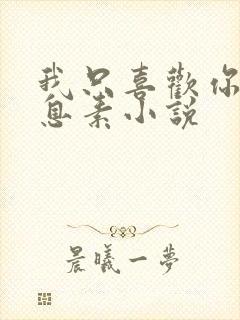 我只喜歡你
息素小說
晨曦一夢